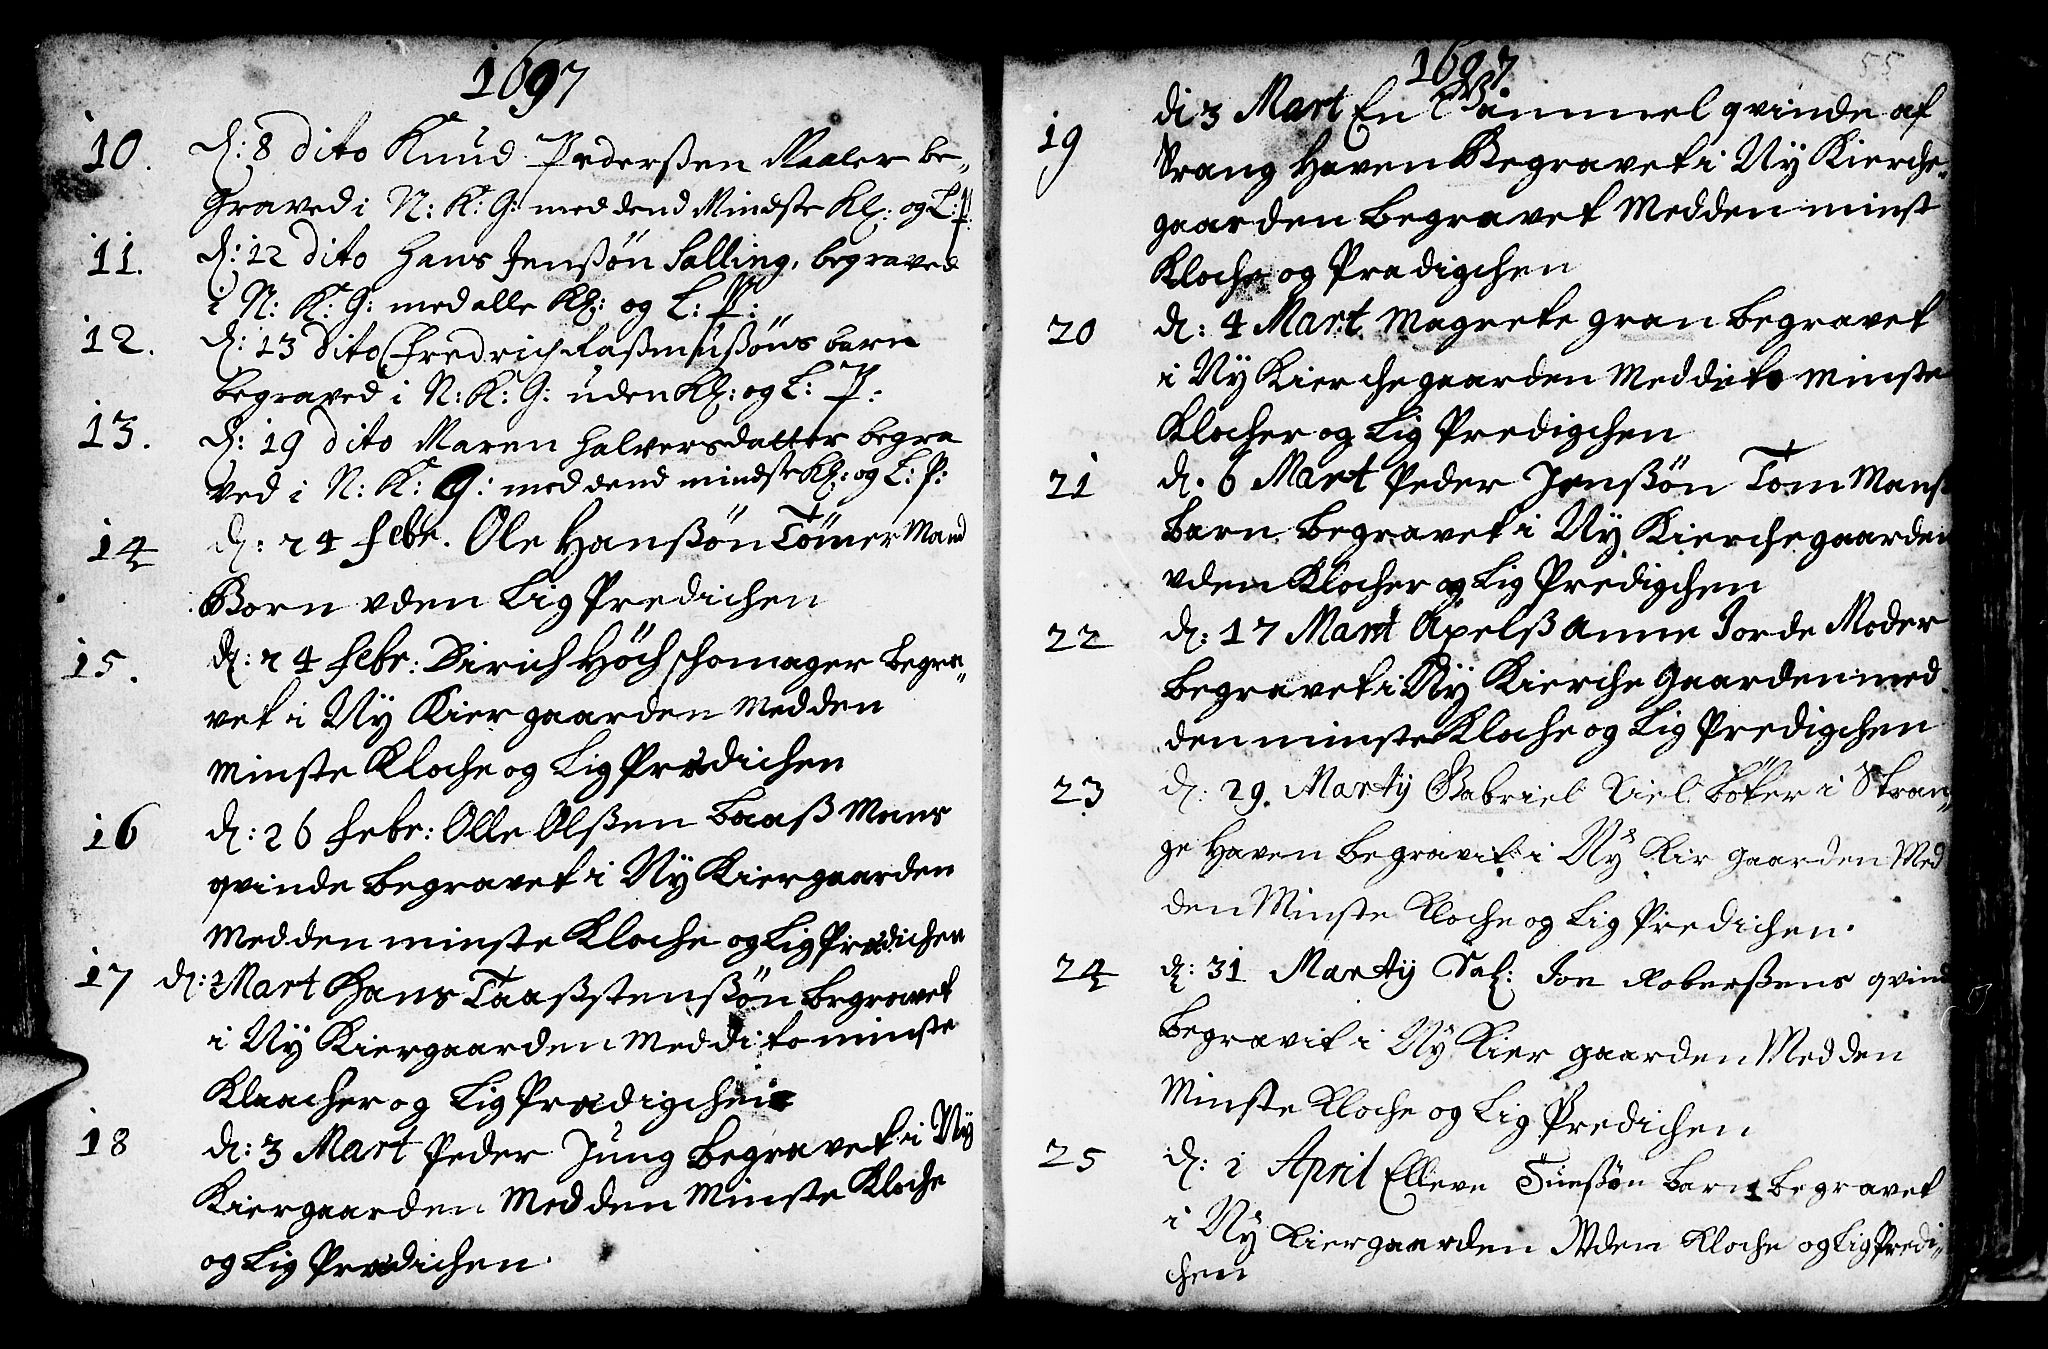 1697
10. d: 8 dito Knud Pederßen Maaler be-
graved i N: K: G: med dend Mindste Kl: og L: P.
11. d: 12 dito Hans Jenßön Salling, begraved
i N: K: G: med alle Kl: og L: P:
12. d: 13 dito Fredrich Raßmußöns barn
begraved i N: K: G: uden Kl: og L: P:
13. d: 19 dito Maren Halversdatter begra
ved i N: K: G: med dend mindste Kl: og L: P:
14 d: 24 Febr. Ole Hanßön Tömer Mand
Born vden Lig Predichen
15. d: 24 Febr: Dirich Höch schomager begra-
vet i Ny Kiergaarden Med den
Minste Kloche og Lig Predichen
16 d: 26 Febr: Olle Olßen Baaß Mans
qvinde begravet i Ny Kiergaarden
Med den minste Kloche og Lig Predichen
17 d: 2 Mart Hans Taaßstenßön begravet
i Ny Kiergaarden Med dito minste
Klaacher og Lig Predigchen
18 d: 3 Mart Peder Jung begravet i Ny
Kiergaarden Med den Minste Kloche
og Lig Predichen.
55
1697
19 di 3 Mart En Gammel qvinde af
Strang Haven Begravet i Ny Kierche-
gaarden begravet Med den minst
Kloche og Predigchen
20 d: 4 Mart Magrete gran begravet
i Ny Kierchegaarden Med dito Minste
Klocher og Lig Predigchen
21 d. 6 Mart Peder Jenßön Tom Mans
barn begravet i Ny Kierchegaarden
vden Klocher og Lig Predigchen
22 d: 17 Mart Apelß Anne Jorde Moder
begravet i Ny Kierche Gaarden med
den minste Kloche og Lig Predigchen
23 d: 29. Martij Gabriel Viel Böker i Stran-
ge Haven begravit i Ny Kir gaarden Med
den Minste Kloche og Lig Predichen.
24 d: 31 Martij Sal: Jon Roberßens qvind
begravit i Ny Kier gaarden Med den
Minste Kloche og Lig Predichen
25 d: 1 April Elleve Barn 1 begravet
i Ny Kiergaarden Vden Kloche og Lig Predi-
chen